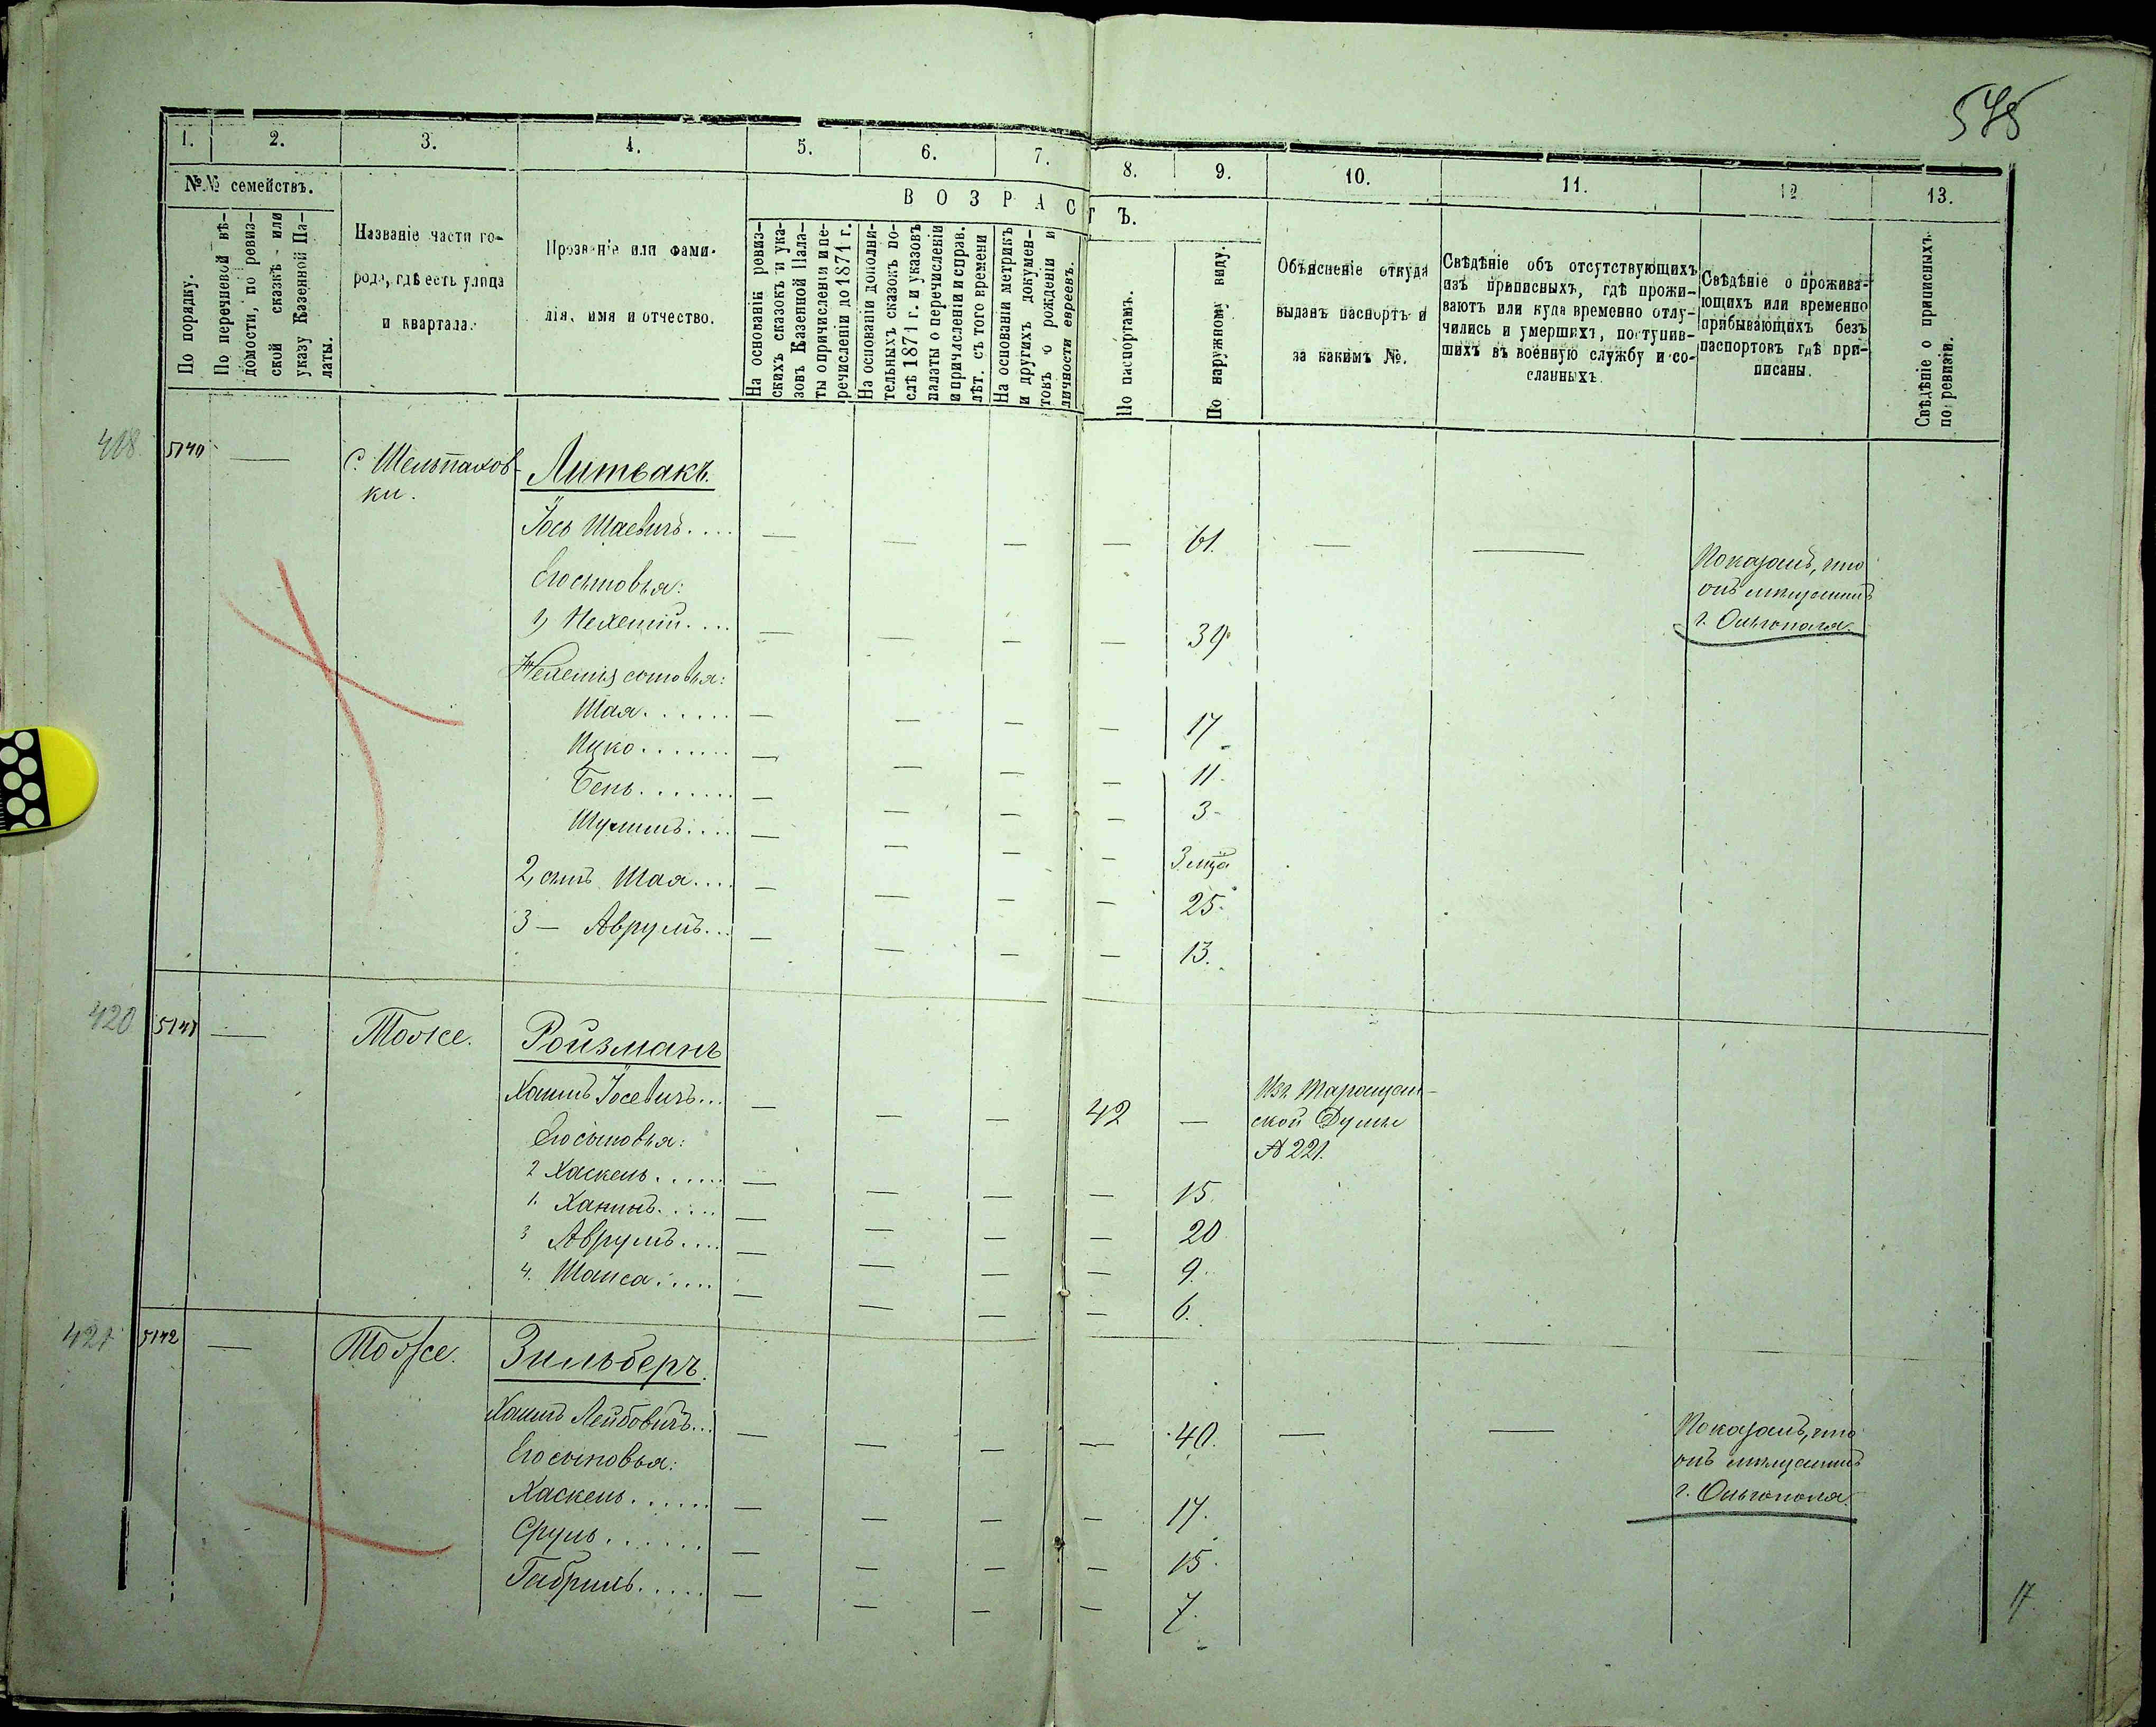 575
1. 2. 3. 4. 5. 6. 7. 8. 9. 10. 11. 12 13.
№№ семействъ.
По порядку.
По перечневой вѣ-
домости, по ревиз-
ской сказкѣ или
указу Казенной Па-
латы.
Названіе части го-
рода, гдѣ есть улица
и квартала.
Прозваніе или фами-
лія, имя и отчество.
ВОЗРАСТЪ.
На основаніи ревиз-
скихъ сказокъ и ука-
зовъ Казенной Пала-
ты о причисленіи и пе-
речисленіи до 1871 г.
На основаніи дополни-
тельныхъ сказокъ по-
слѣ 1871 г. и указовъ
палаты о перечисленіи
и причисленіи и справ.
лѣт. съ того времени
На основаніи метрикъ
и другихъ докумен-
товъ о рожденіи и
личности евреевъ.
По паспортамъ.
По наружному виду.
Объясненіе откуда
выданъ паспортъ и
за какимъ №.
Свѣдѣніе объ отсутствующихъ
изъ приписныхъ, гдѣ прожи-
ваютъ или куда временно отлу-
чились и умершихъ, поступив-
шихъ въ военную службу и со-
сланныхъ.
Свѣдѣніе о прожива-
ющихъ или временно
прибывающихъ безъ
паспортовъ гдѣ при-
писаны.
Свѣдѣніе о приписныхъ
по ревизіи.
418. 5140 — С. Шельпахов-
ки.
Литвакъ.
Іось Шаевичъ.... — — — — 61. — —
Показалъ, что
онъ мѣщанинъ
г. Ольгополя.
Его сыновья:
1, Нехемій.... — — — — 39.
Нехемія сыновья:
Шая...... — — — — 17
Ицко....... — — — — 11.
Бень....... — — — — 3-
Шулимъ.... — — — — 3 мца
2, сынъ Шая.... — — — — 25.
3 — Аврумъ... — — — — 13.
420 5141 — Тоже. Ройзманъ
Хаимъ Іосевичъ... — — — 42 —
Изъ Таращан-
ской Думы
№ 221.
Его сыновья:
2 Хаскель...... — — — — 15.
1. Ханинъ..... — — — — 20
3 Аврумъ.... — — — — 9.
4. Шаиса..... — — — — 6.
421 5142 — Тоже. Зильберъ.
Хаимъ Лейбовичъ... — — — — 40. — —
Показалъ, что
онъ мѣщанинъ
г. Ольгополя.
Его сыновья:
Хаскель...... — — — — 17.
Сруль...... — — — — 15.
Габриль..... — — — — 7.
17